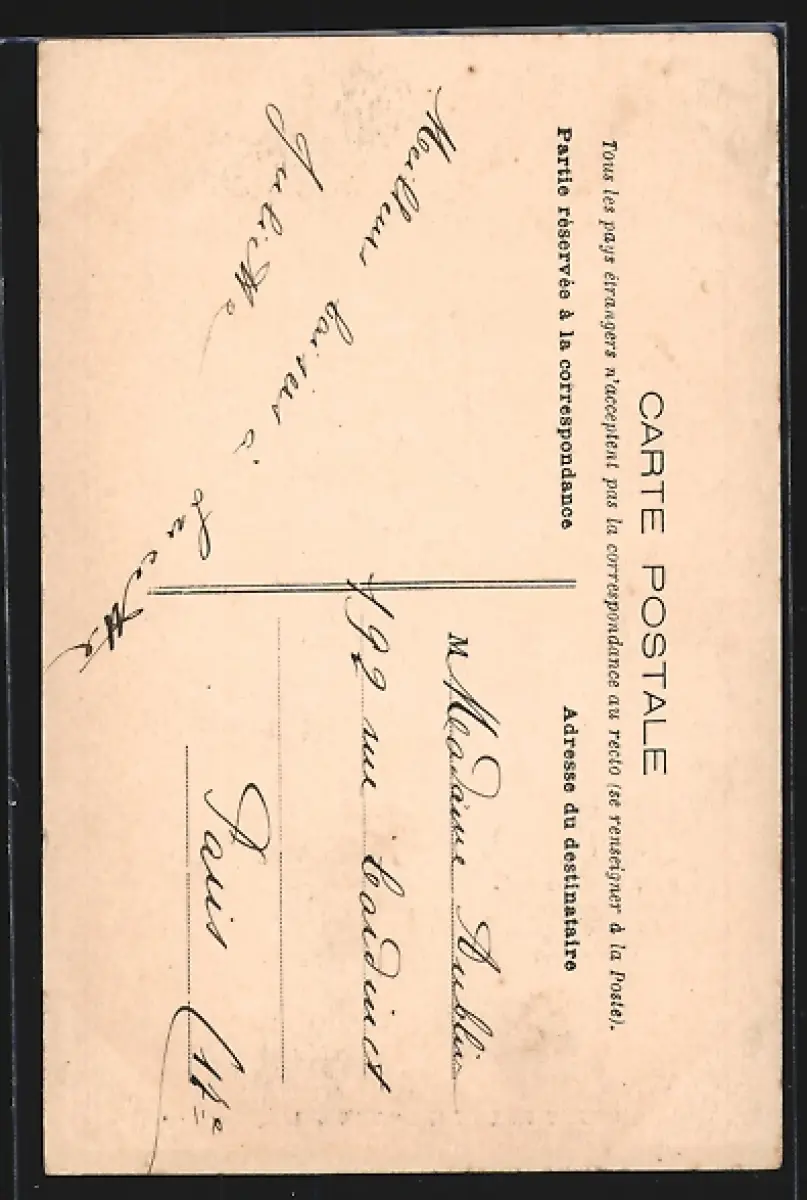 CARTE POSTALE
Tous les pays étrangers n'acceptent pas la correspondance au recto (se renseigner à la Poste).
Partie réservée à la correspondance
Adresse du destinataire
Meilleurs baisers à Lucette
Juliette
M Madame Aublin
192 rue Cardinet
Paris (17e